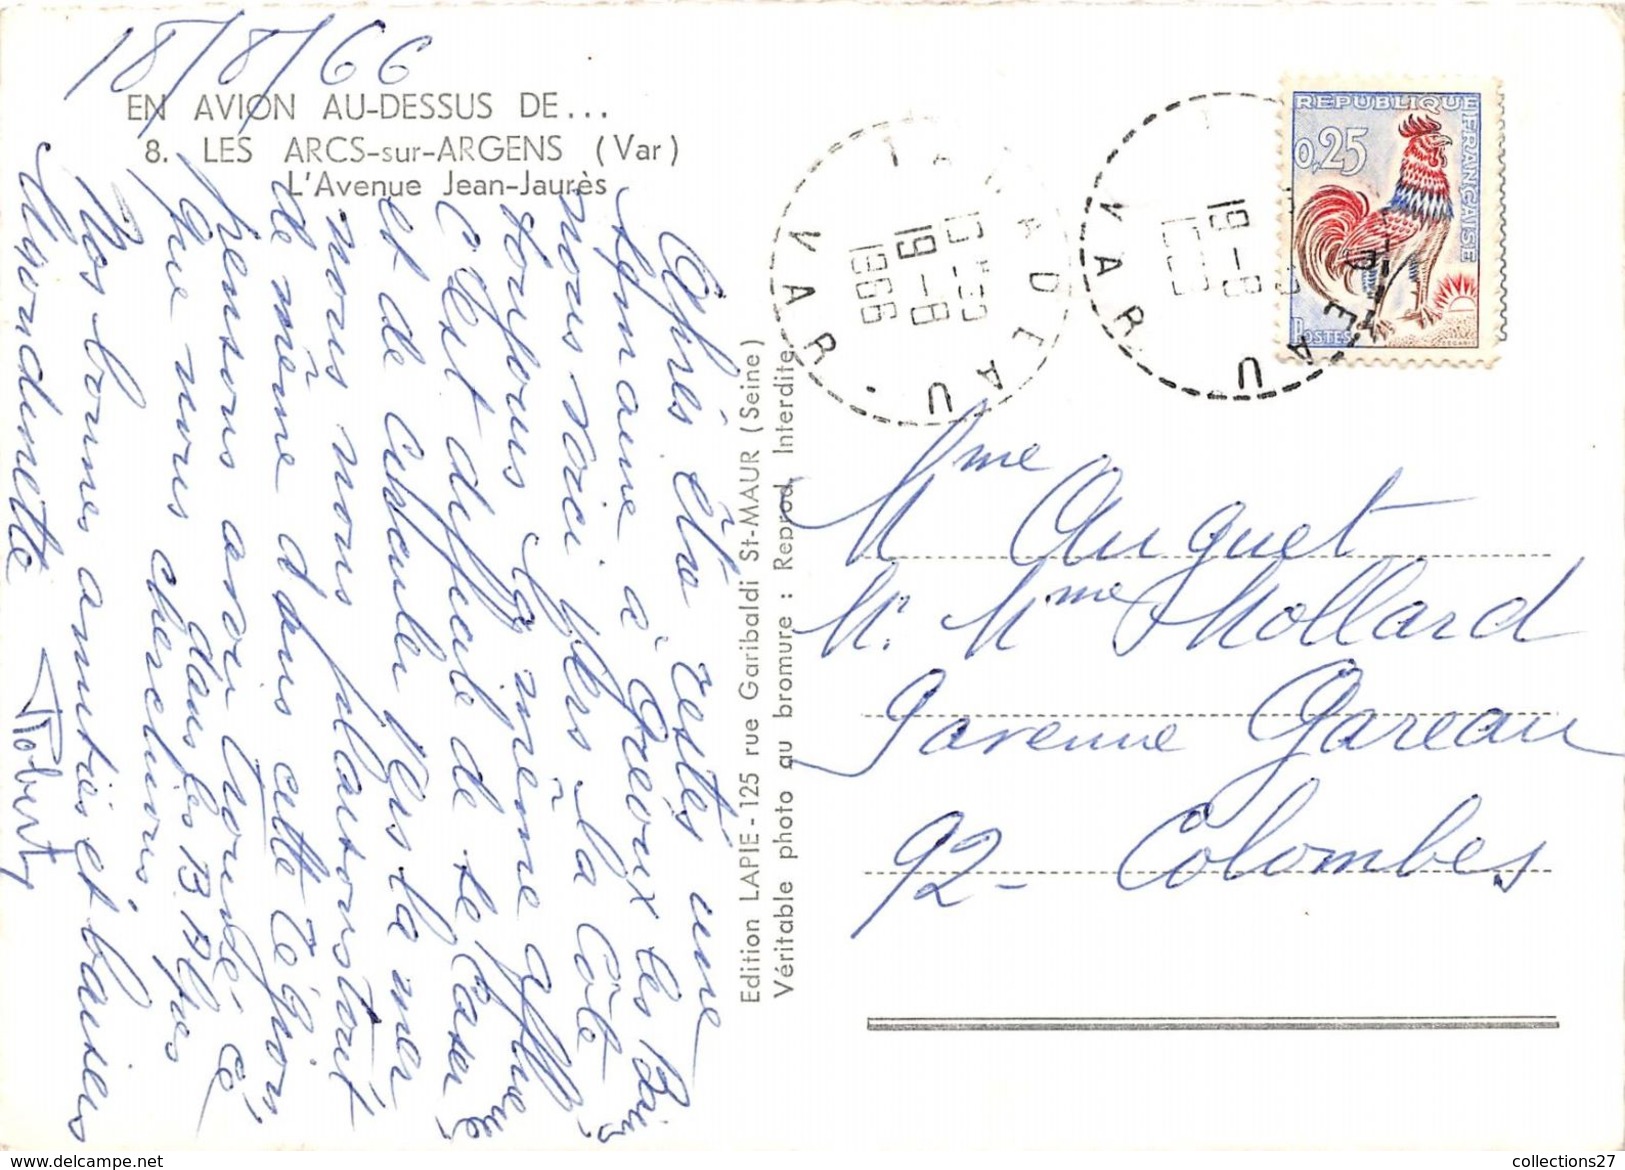 18/8/66
EN AVION AU-DESSUS DE...
8. LES ARCS-sur-ARGENS (Var)
L'Avenue Jean-Jaurès
Après être restés une
semaine à Gréoux les Bains
nous voici vers la Côte
toujours la même affluence
C'est difficile de se caser
et de circuler. Vers la mer
nous nous plaisons tout
de même dans cette région
pensons avoir trouvé ce
que nous cherchions
dans les B Alpes
Nos bonnes amitiés et baisers
Mourdinette Robert
Edition LAPIE - 125 rue Garibaldi St-MAUR (Seine)
Véritable photo au bromure : Reprod. Interdite
TARADEAU
VAR
19-8
1966
TARADEAU
VAR
19-8
REPUBLIQUE FRANÇAISE
0,25
POSTES
DECARIS
Mme Auguet
M. Mme Mollard
9 avenue Gareau
92- Colombes
collections27